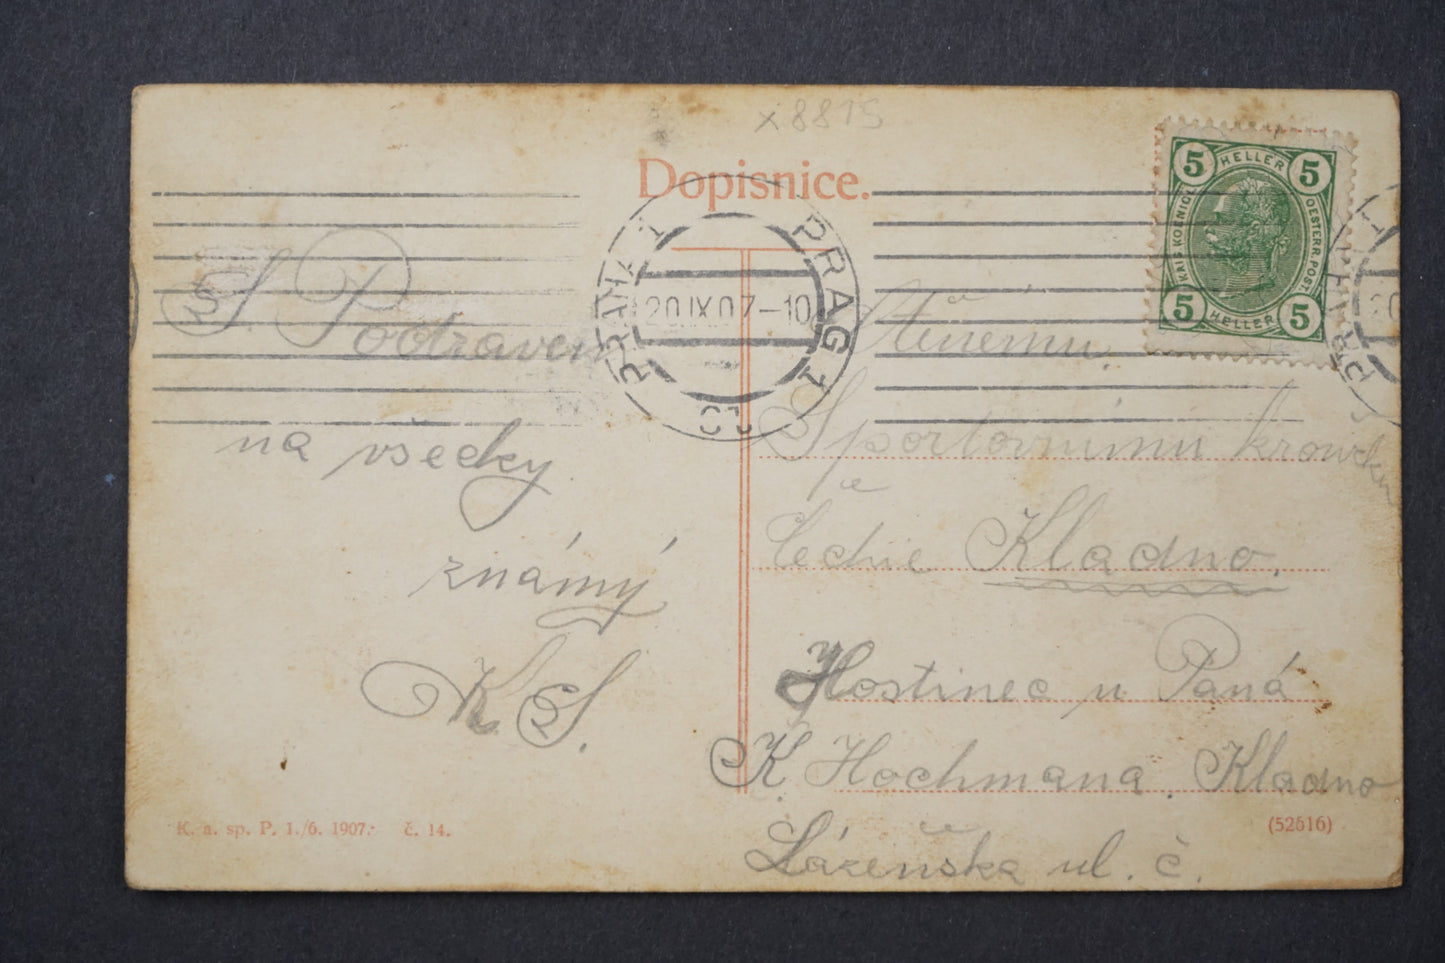 x8815
Dopisnice.
5 HELLER 5
KAIS. KOENIGL. OESTERR. POST.
5 HELLER 5
PRAHA 1 PRAG 1
20.IX.07-10
S Pozdravem
na všecky
známý
K S.
Ctěnému
Sportovnímu
Čechie Kladno.
Hostinec u Paná
K. Hochmana. Kladno
Lázeňska ul. č.
K. a. sp. P. 1./6. 1907. č. 14.
(52616)